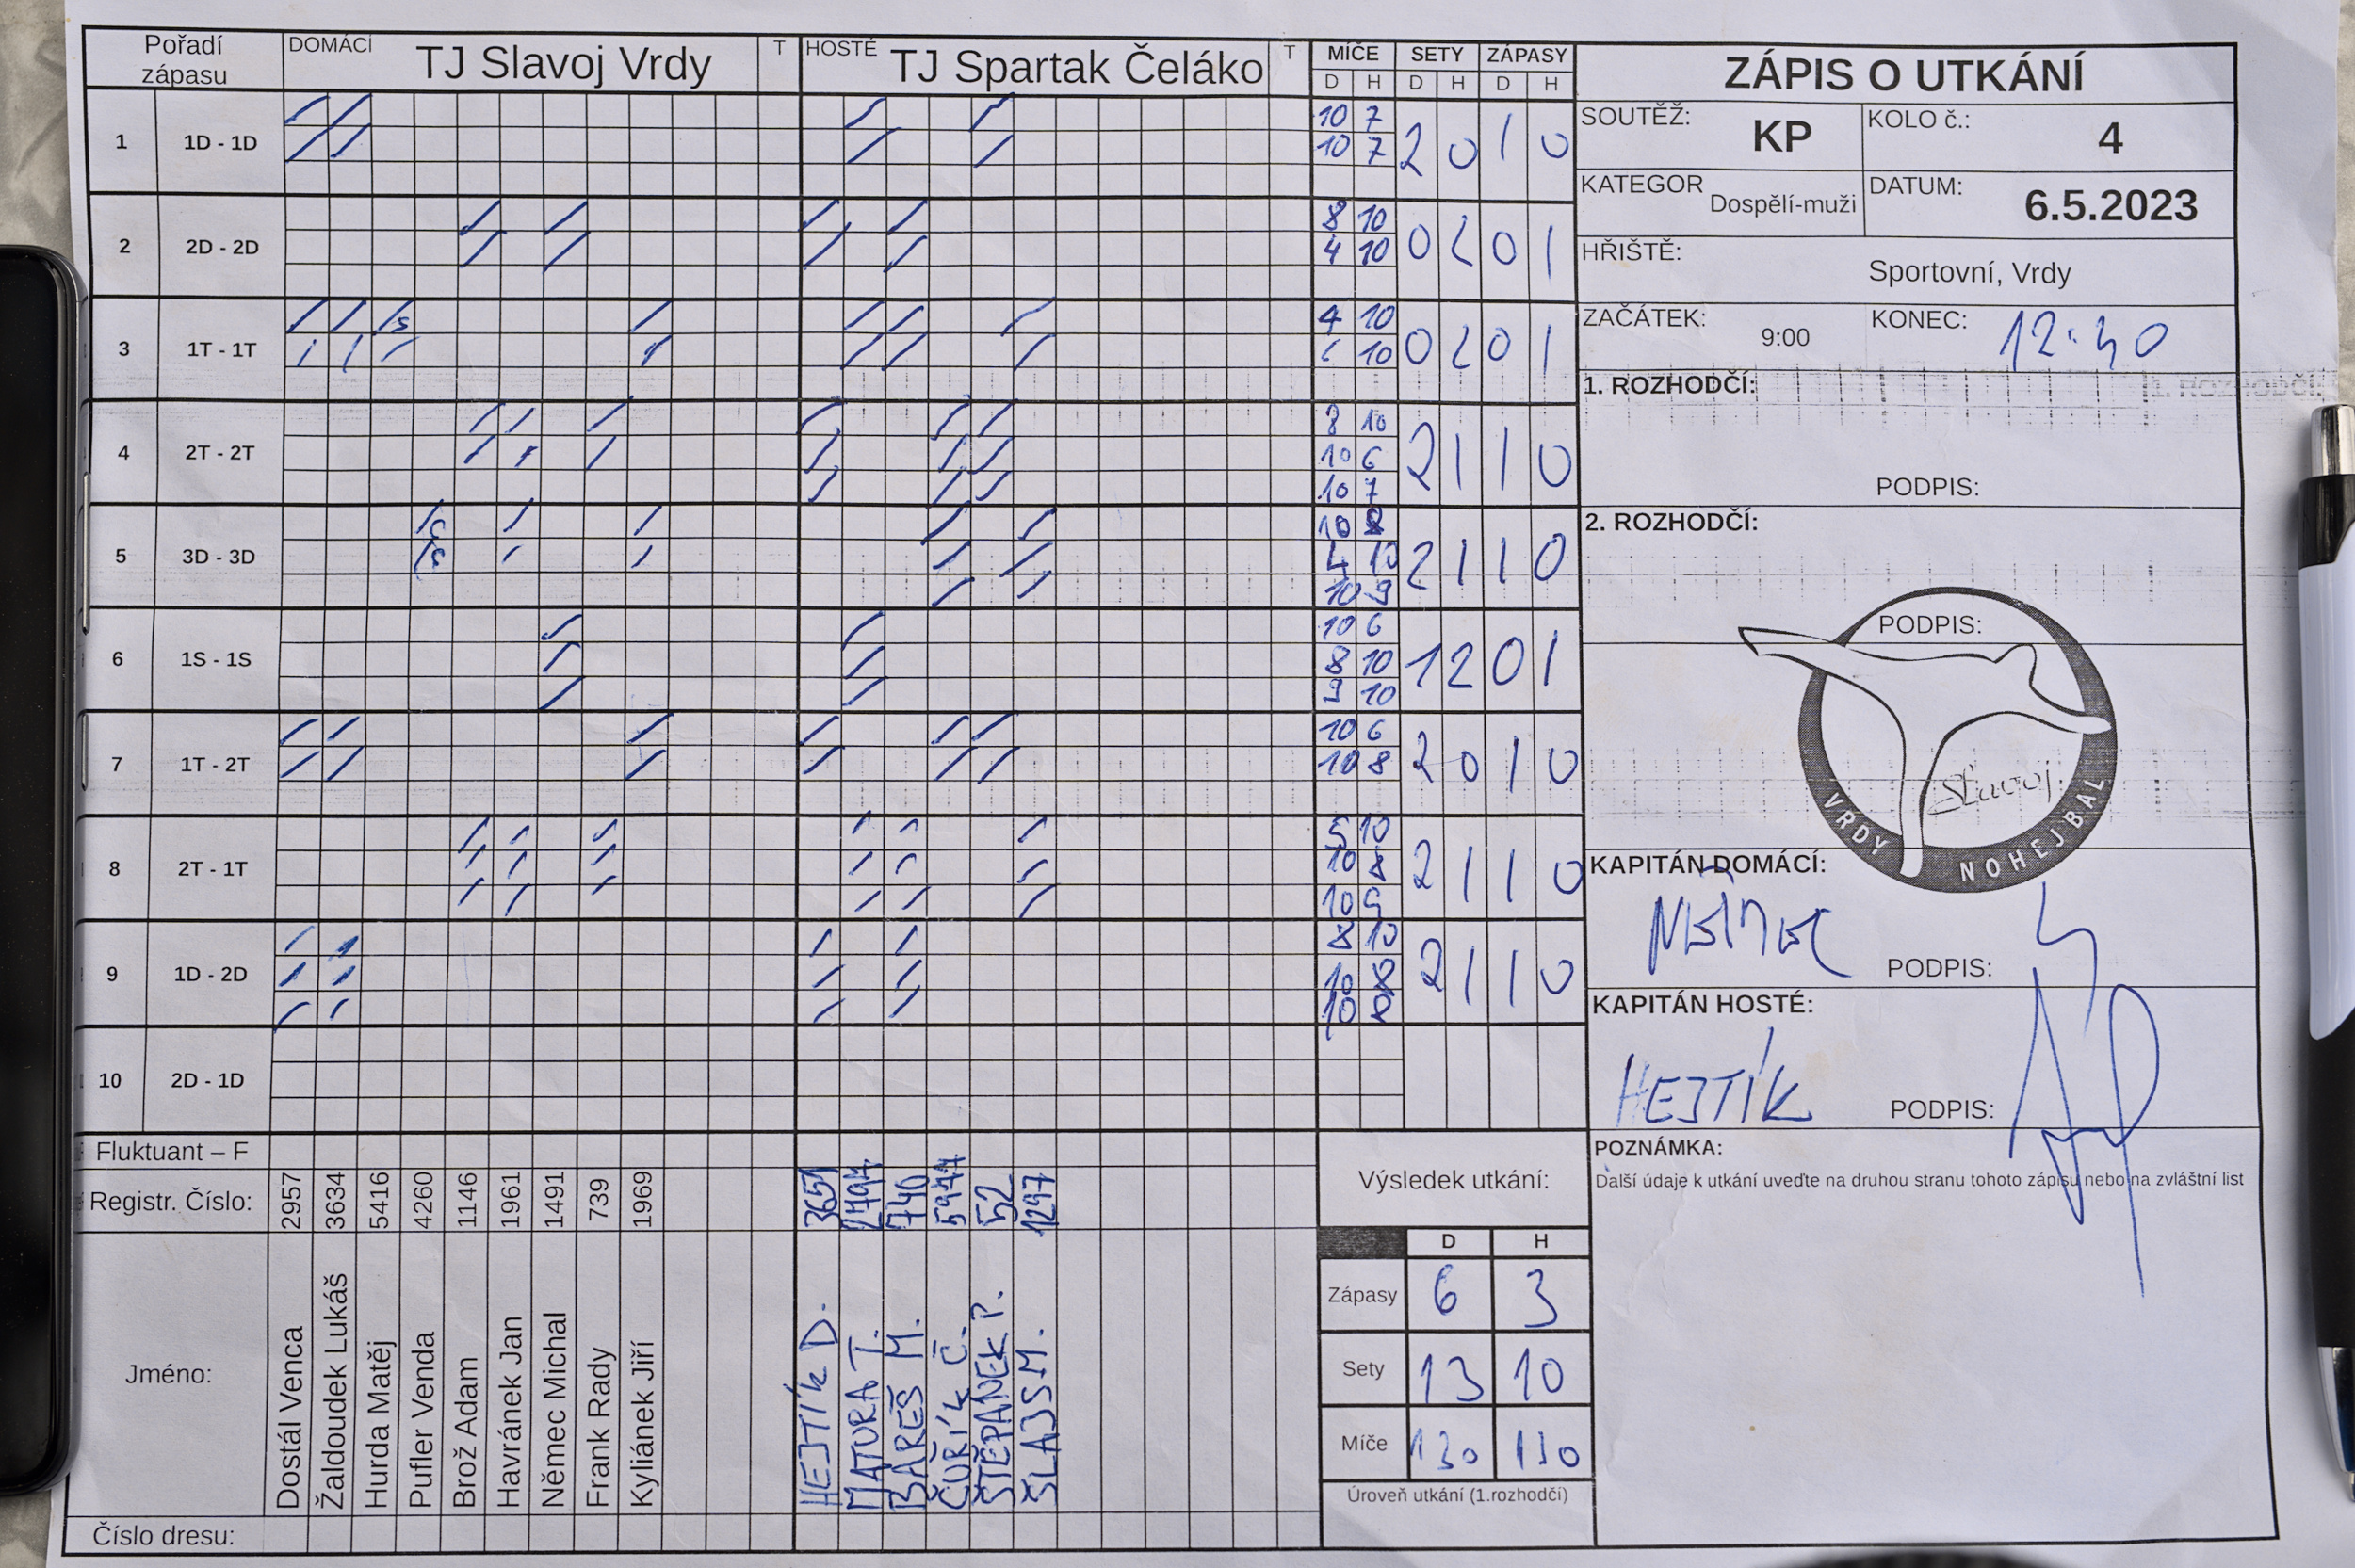 Pořadí zápasu DOMÁCÍ TJ Slavoj Vrdy T HOSTÉ TJ Spartak Čeláko T MÍČE SETY ZÁPASY
D H D H D H
1 1D - 1D 10 7 2 0 1 0
10 7
2 2D - 2D 8 10 0 2 0 1
4 10
3 1T - 1T 4 10 0 2 0 1
10
4 2T - 2T 8 10 2 1 1 0
10 6
10 7
5 3D - 3D 10 8 2 1 1 0
4 10
10 9
6 1S - 1S 10 6 1 2 0 1
8 10
9 10
7 1T - 2T 10 6 2 0 1 0
10 8
8 2T - 1T 5 10 2 1 1 0
10 8
10 9
9 1D - 2D 8 10 2 1 1 0
10 8
10 8
10 2D - 1D
Fluktuant – F
Registr. Číslo: 2957 3634 5416 4260 1146 1961 1491 739 1969 3651 740 52 1297
Jméno: Dostál Venca Žaldoudek Lukáš Hurda Matěj Pufler Venda Brož Adam Havránek Jan Němec Michal Frank Rady Kyliánek Jiří HEJTÍK D. MATURA T. BAREŠ M. ČUŘÍK Č. ŠTĚPÁNEK P. ŠLAJS M.
Číslo dresu:
Výsledek utkání:
D H
Zápasy 6 3
Sety 13 10
Míče 130 110
Úroveň utkání (1.rozhodčí)
ZÁPIS O UTKÁNÍ
SOUTĚŽ: KP KOLO č.: 4
KATEGOR Dospělí-muži DATUM: 6.5.2023
HŘIŠTĚ: Sportovní, Vrdy
ZAČÁTEK: 9:00 KONEC: 12:40
1. ROZHODČÍ:
PODPIS:
2. ROZHODČÍ:
PODPIS:
Slavoj
VRDY NOHEJBAL
KAPITÁN DOMÁCÍ:
NĚMEC PODPIS:
KAPITÁN HOSTÉ:
HEJTÍK PODPIS:
POZNÁMKA:
Další údaje k utkání uveďte na druhou stranu tohoto zápisu nebo na zvláštní list